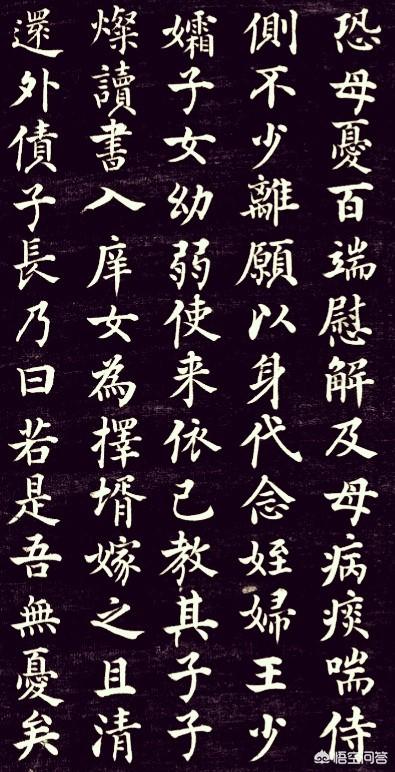 恐母憂百端慰解及母病痰喘侍
側不少離願以身代念姪婦王少
孀子女幼弱使来依已教其子子
燦讀書入庠女為擇壻嫁之且清
還外債子長乃曰若是吾無憂矣
悟空问答